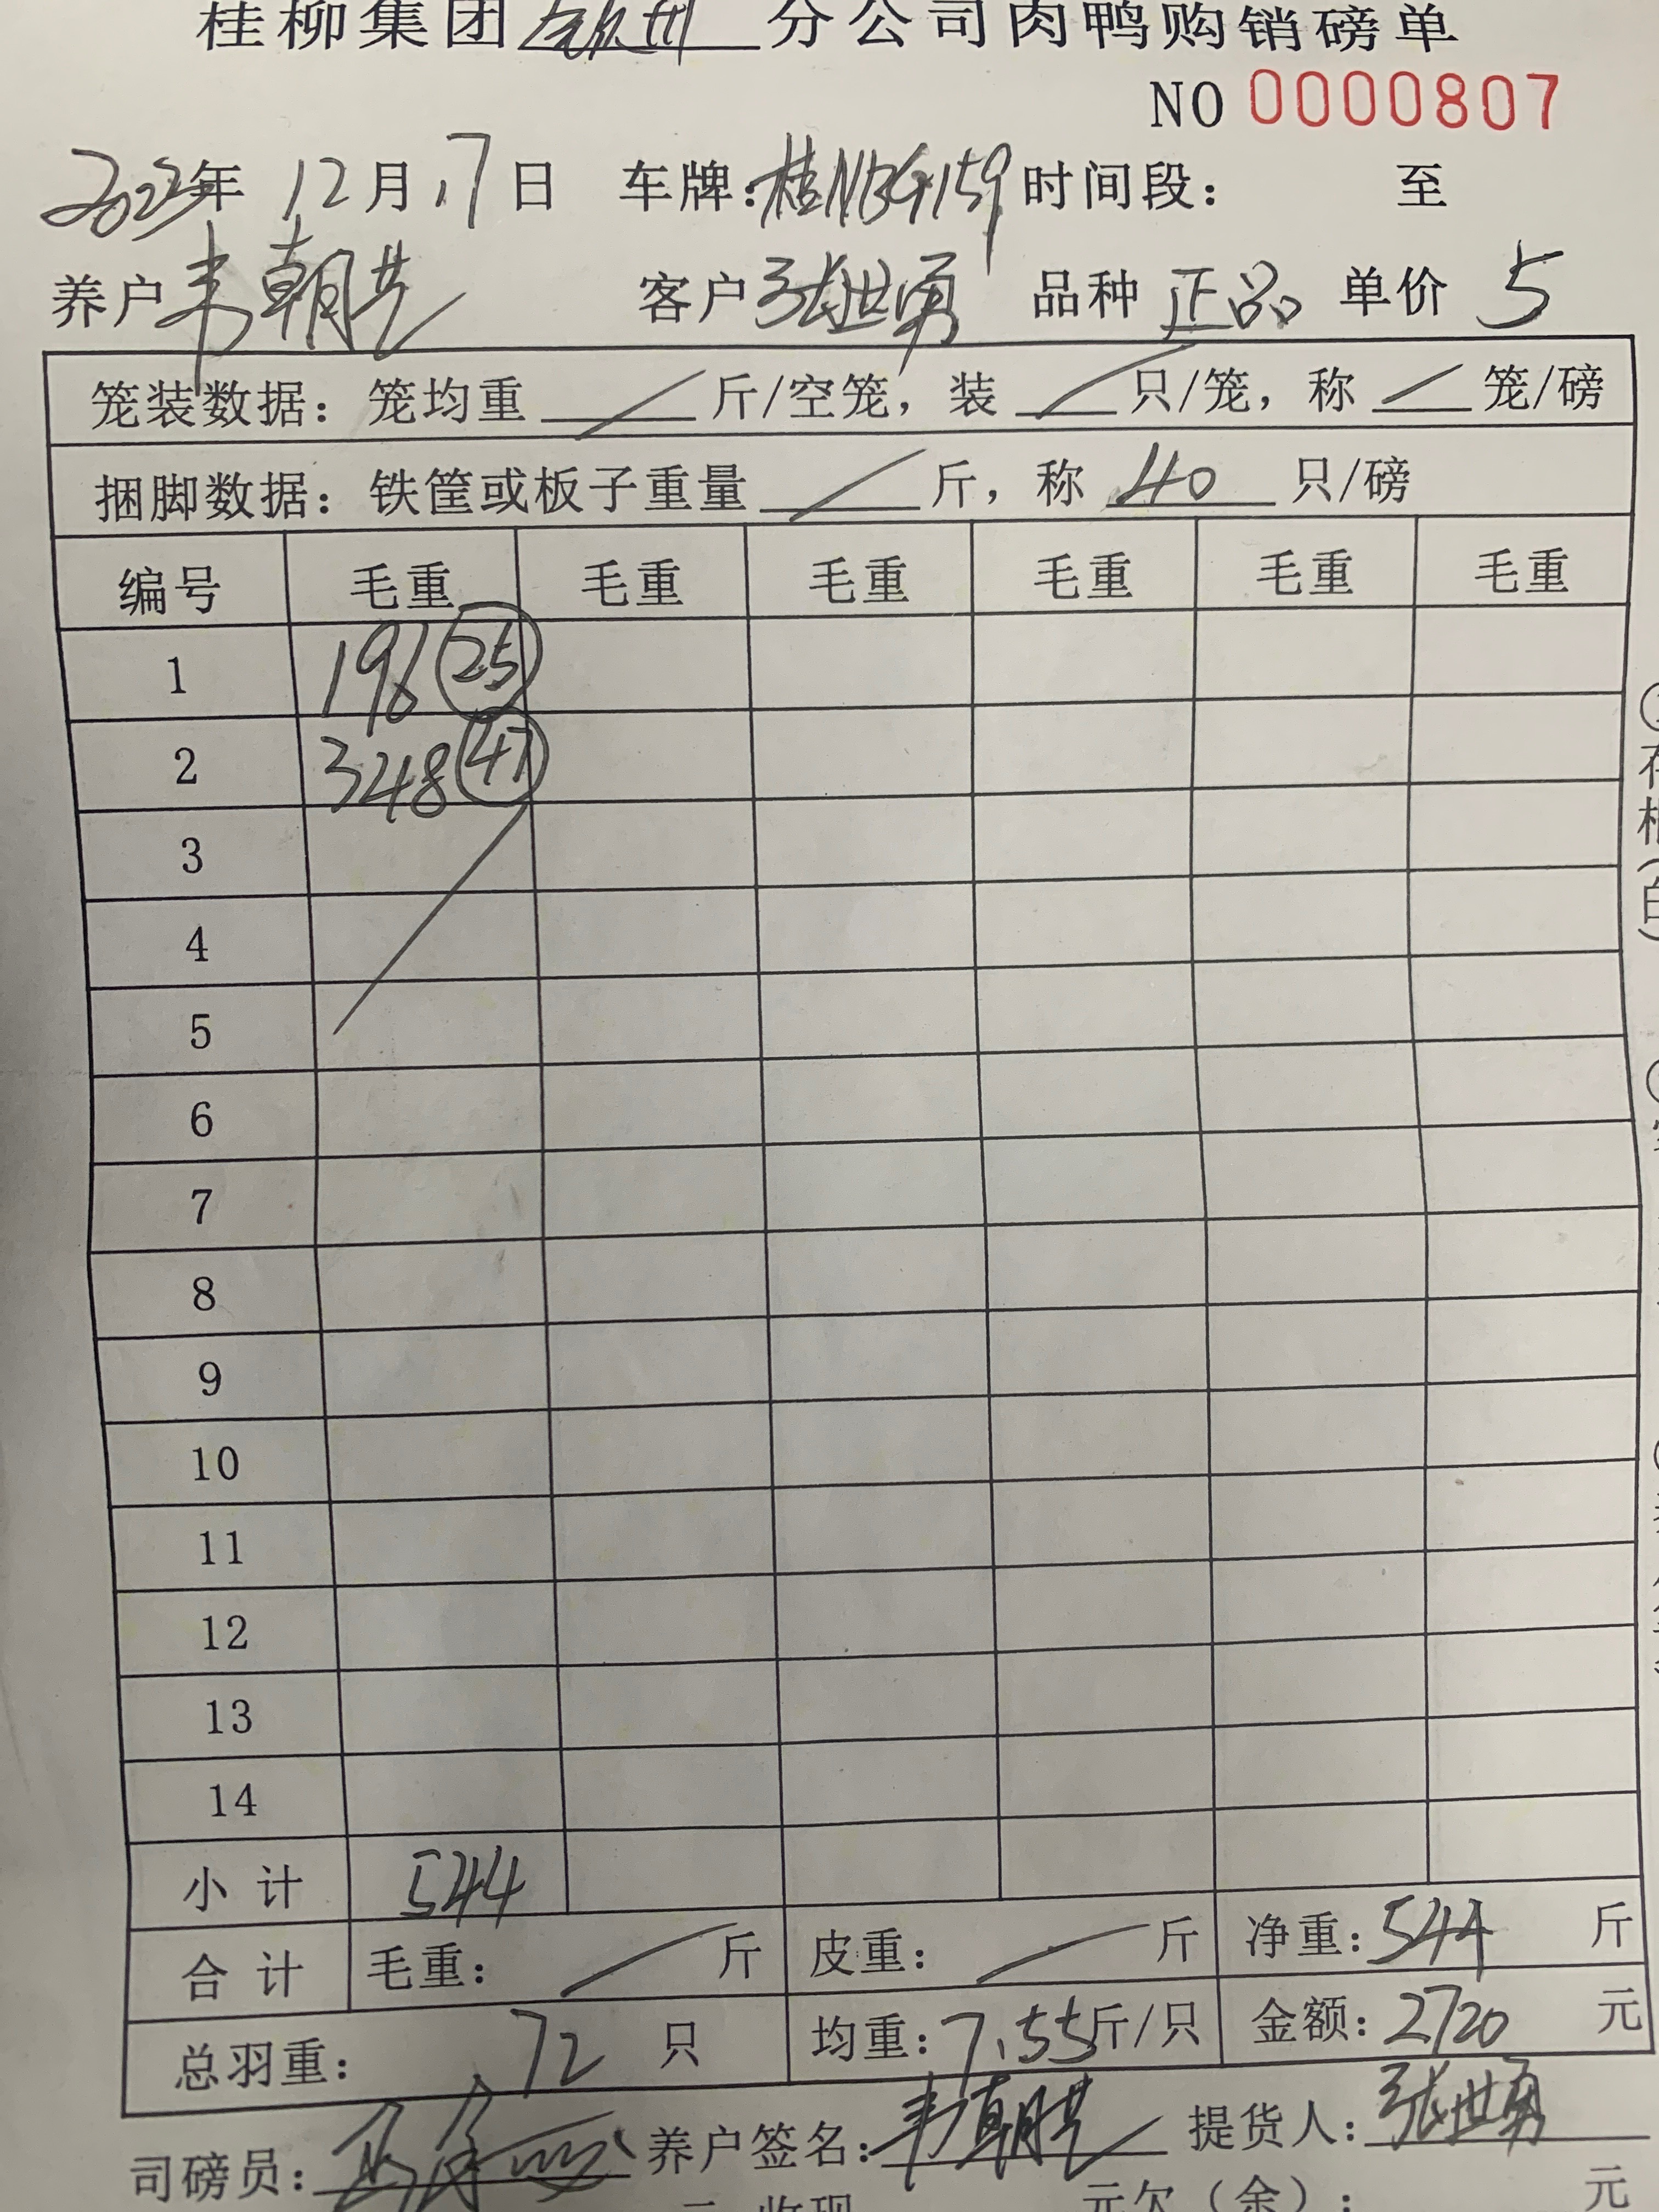 桂柳集团 分公司肉鸭购销磅单
NO 0000807
年 12月17日 车牌:桂NBG159 时间段: 至
养户 韦朝 客户 张世勇 品种 正品 单价 5
笼装数据: 笼均重 斤/空笼, 装 只/笼, 称 笼/磅
捆脚数据: 铁筐或板子重量 斤, 称 40 只/磅
编号 毛重 毛重 毛重 毛重 毛重 毛重
1 196 25
2 348 47
3
4
5
6
7
8
9
10
11
12
13
14
小计 544
合计 毛重: 斤 皮重: 斤 净重: 544 斤
总羽重: 72 只 均重: 7.55斤/只 金额: 2720 元
司磅员: 养户签名: 韦朝 提货人: 张世勇
元欠(余): 元
存根(白)